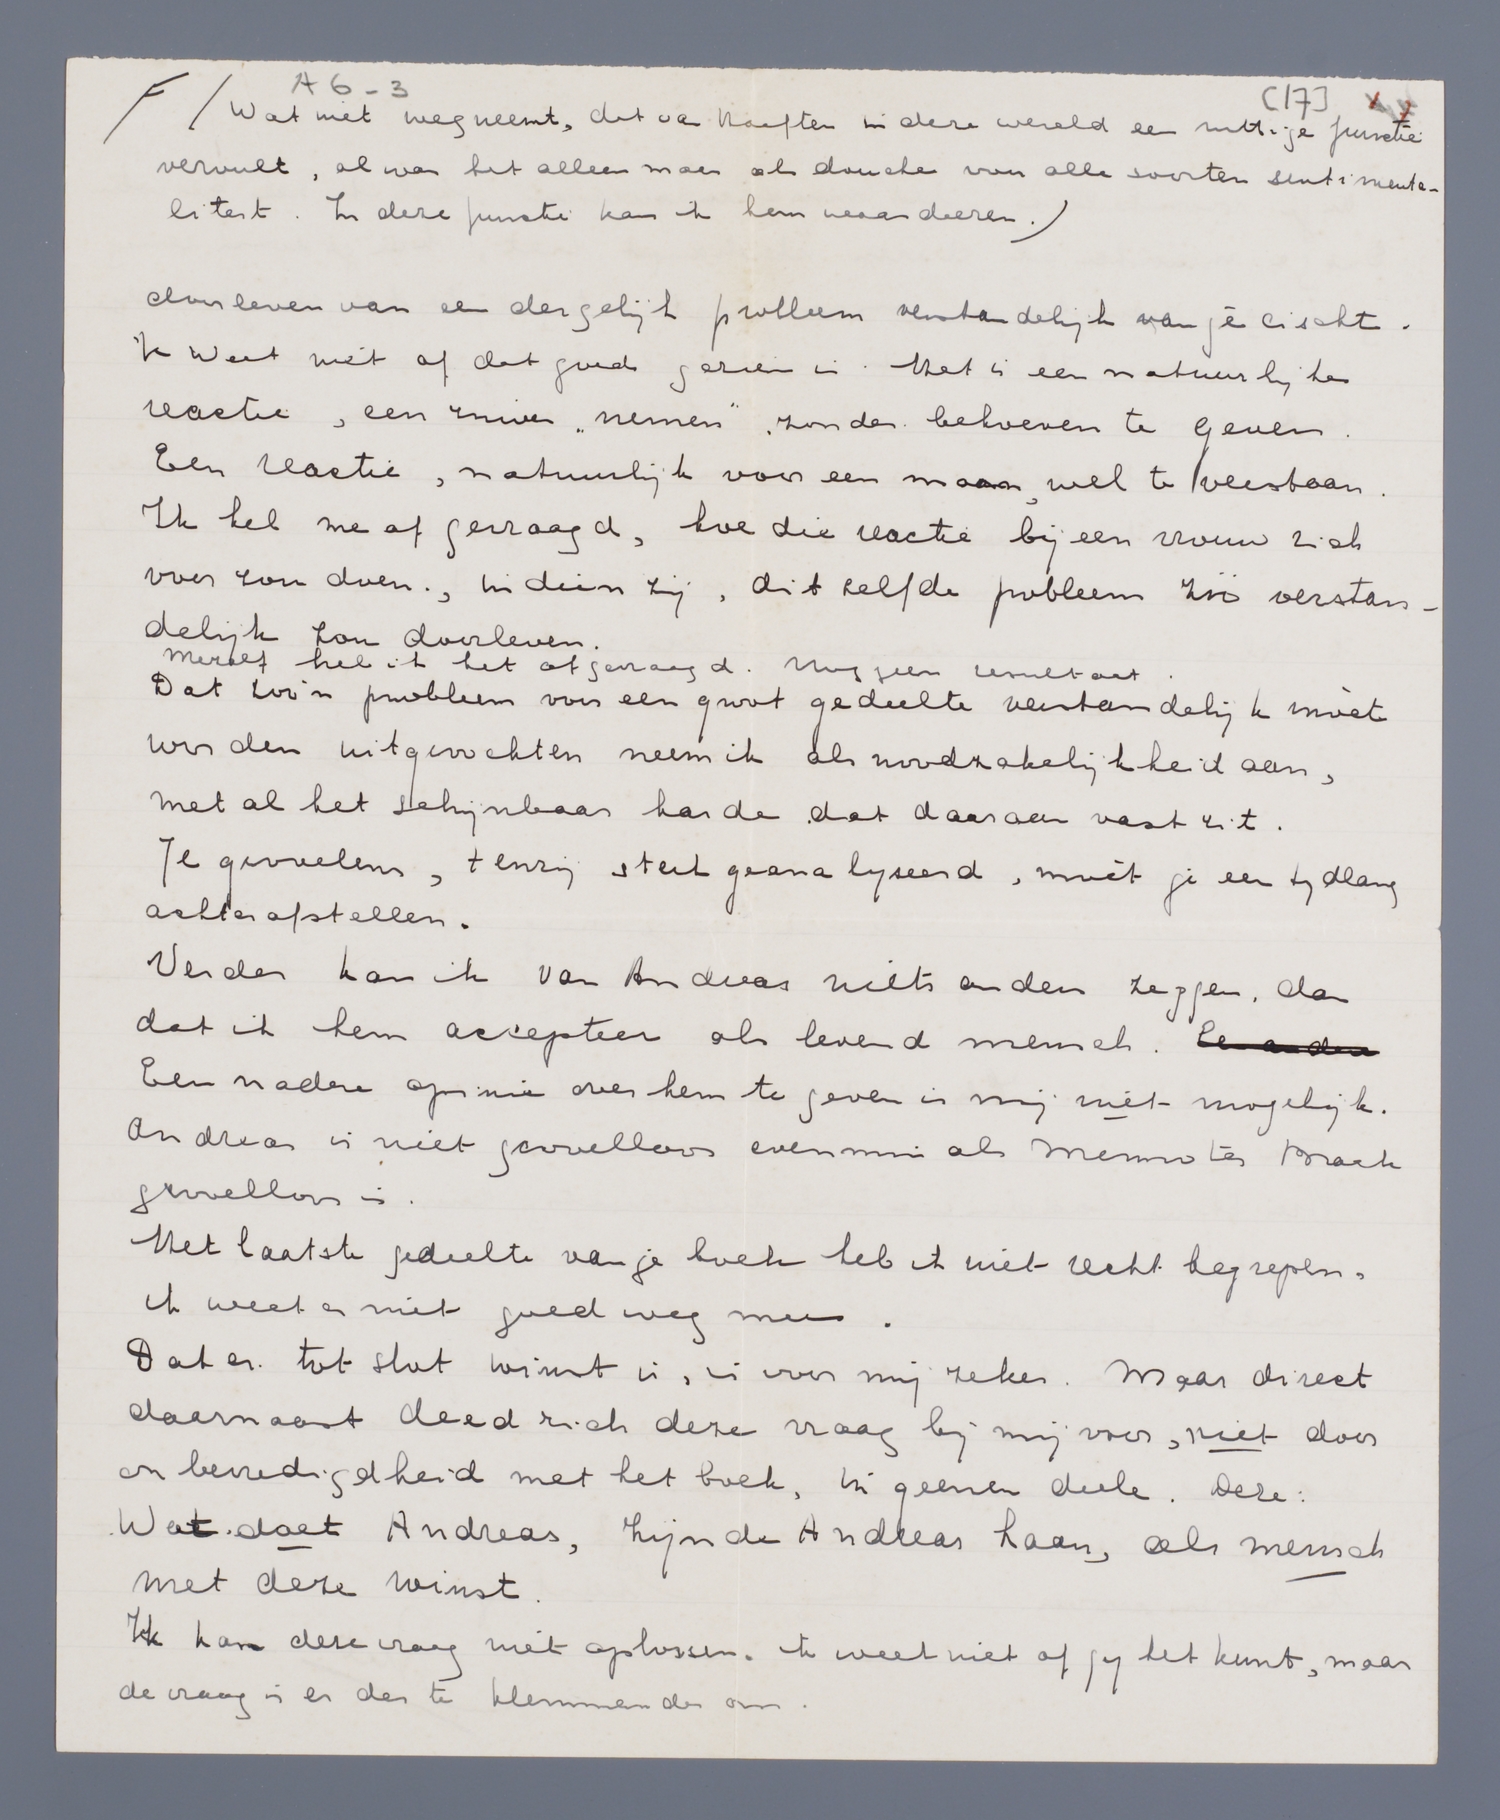 A6-3
[17]
F / (Wat niet wegneemt, dat van Haaften in deze wereld een nuttige functie
vervult, al was het alleen maar als douche voor alle soorten sentimenta-
liteit. In deze functie kan ik hem waardeeren.)
doorleven van een dergelijk probleem verstandelijk van je eischt.
Ik weet niet of dat goed gezien is. Het is een natuurlijke
reactie, een zuiver „nemen" zonder behoeven te geven.
Een reactie, natuurlijk voor een man, wel te verstaan.
Ik heb me afgevraagd, hoe die reactie bij een vrouw zich
voor zou doen., indien zij, ditzelfde probleem zóó verstan-
delijk zou doorleven.
Mezelf heb ik het afgevraagd. Nog geen resultaat.
Dat zoo'n probleem voor een groot gedeelte verstandelijk móet
worden uitgevochten neem ik als noodzakelijkheid aan,
met al het schijnbaar harde dat daaraan vast zit.
Je gevoelens, tenzij sterk geanalyseerd, moét je een tydlang
achterafstellen.
Verder kan ik van Andreas niets anders zeggen, dan
dat ik hem accepteer als levend mensch. Een andere
Een nadere opinie over hem te geven is mij niet mogelijk.
Andreas is niet gevoelloos evenmin als Menno ter Braak
gevoelloos is.
Het laatste gedeelte van je boek heb ik niet recht begrepen,
ik weet er niet goed weg mee.
Dat er tot slot winst is, is voor mij zeker. Maar direct
daarnaast deed zich deze vraag bij mij voor, niet door
onbevredigdheid met het boek, in geenen deele. Deze:
Wat doet Andreas, zijnde Andreas Laan, als mensch
met deze winst.
Ik kan deze vraag niet oplossen. ik weet niet of jy het kunt, maar
de vraag is er des te klemmender om.